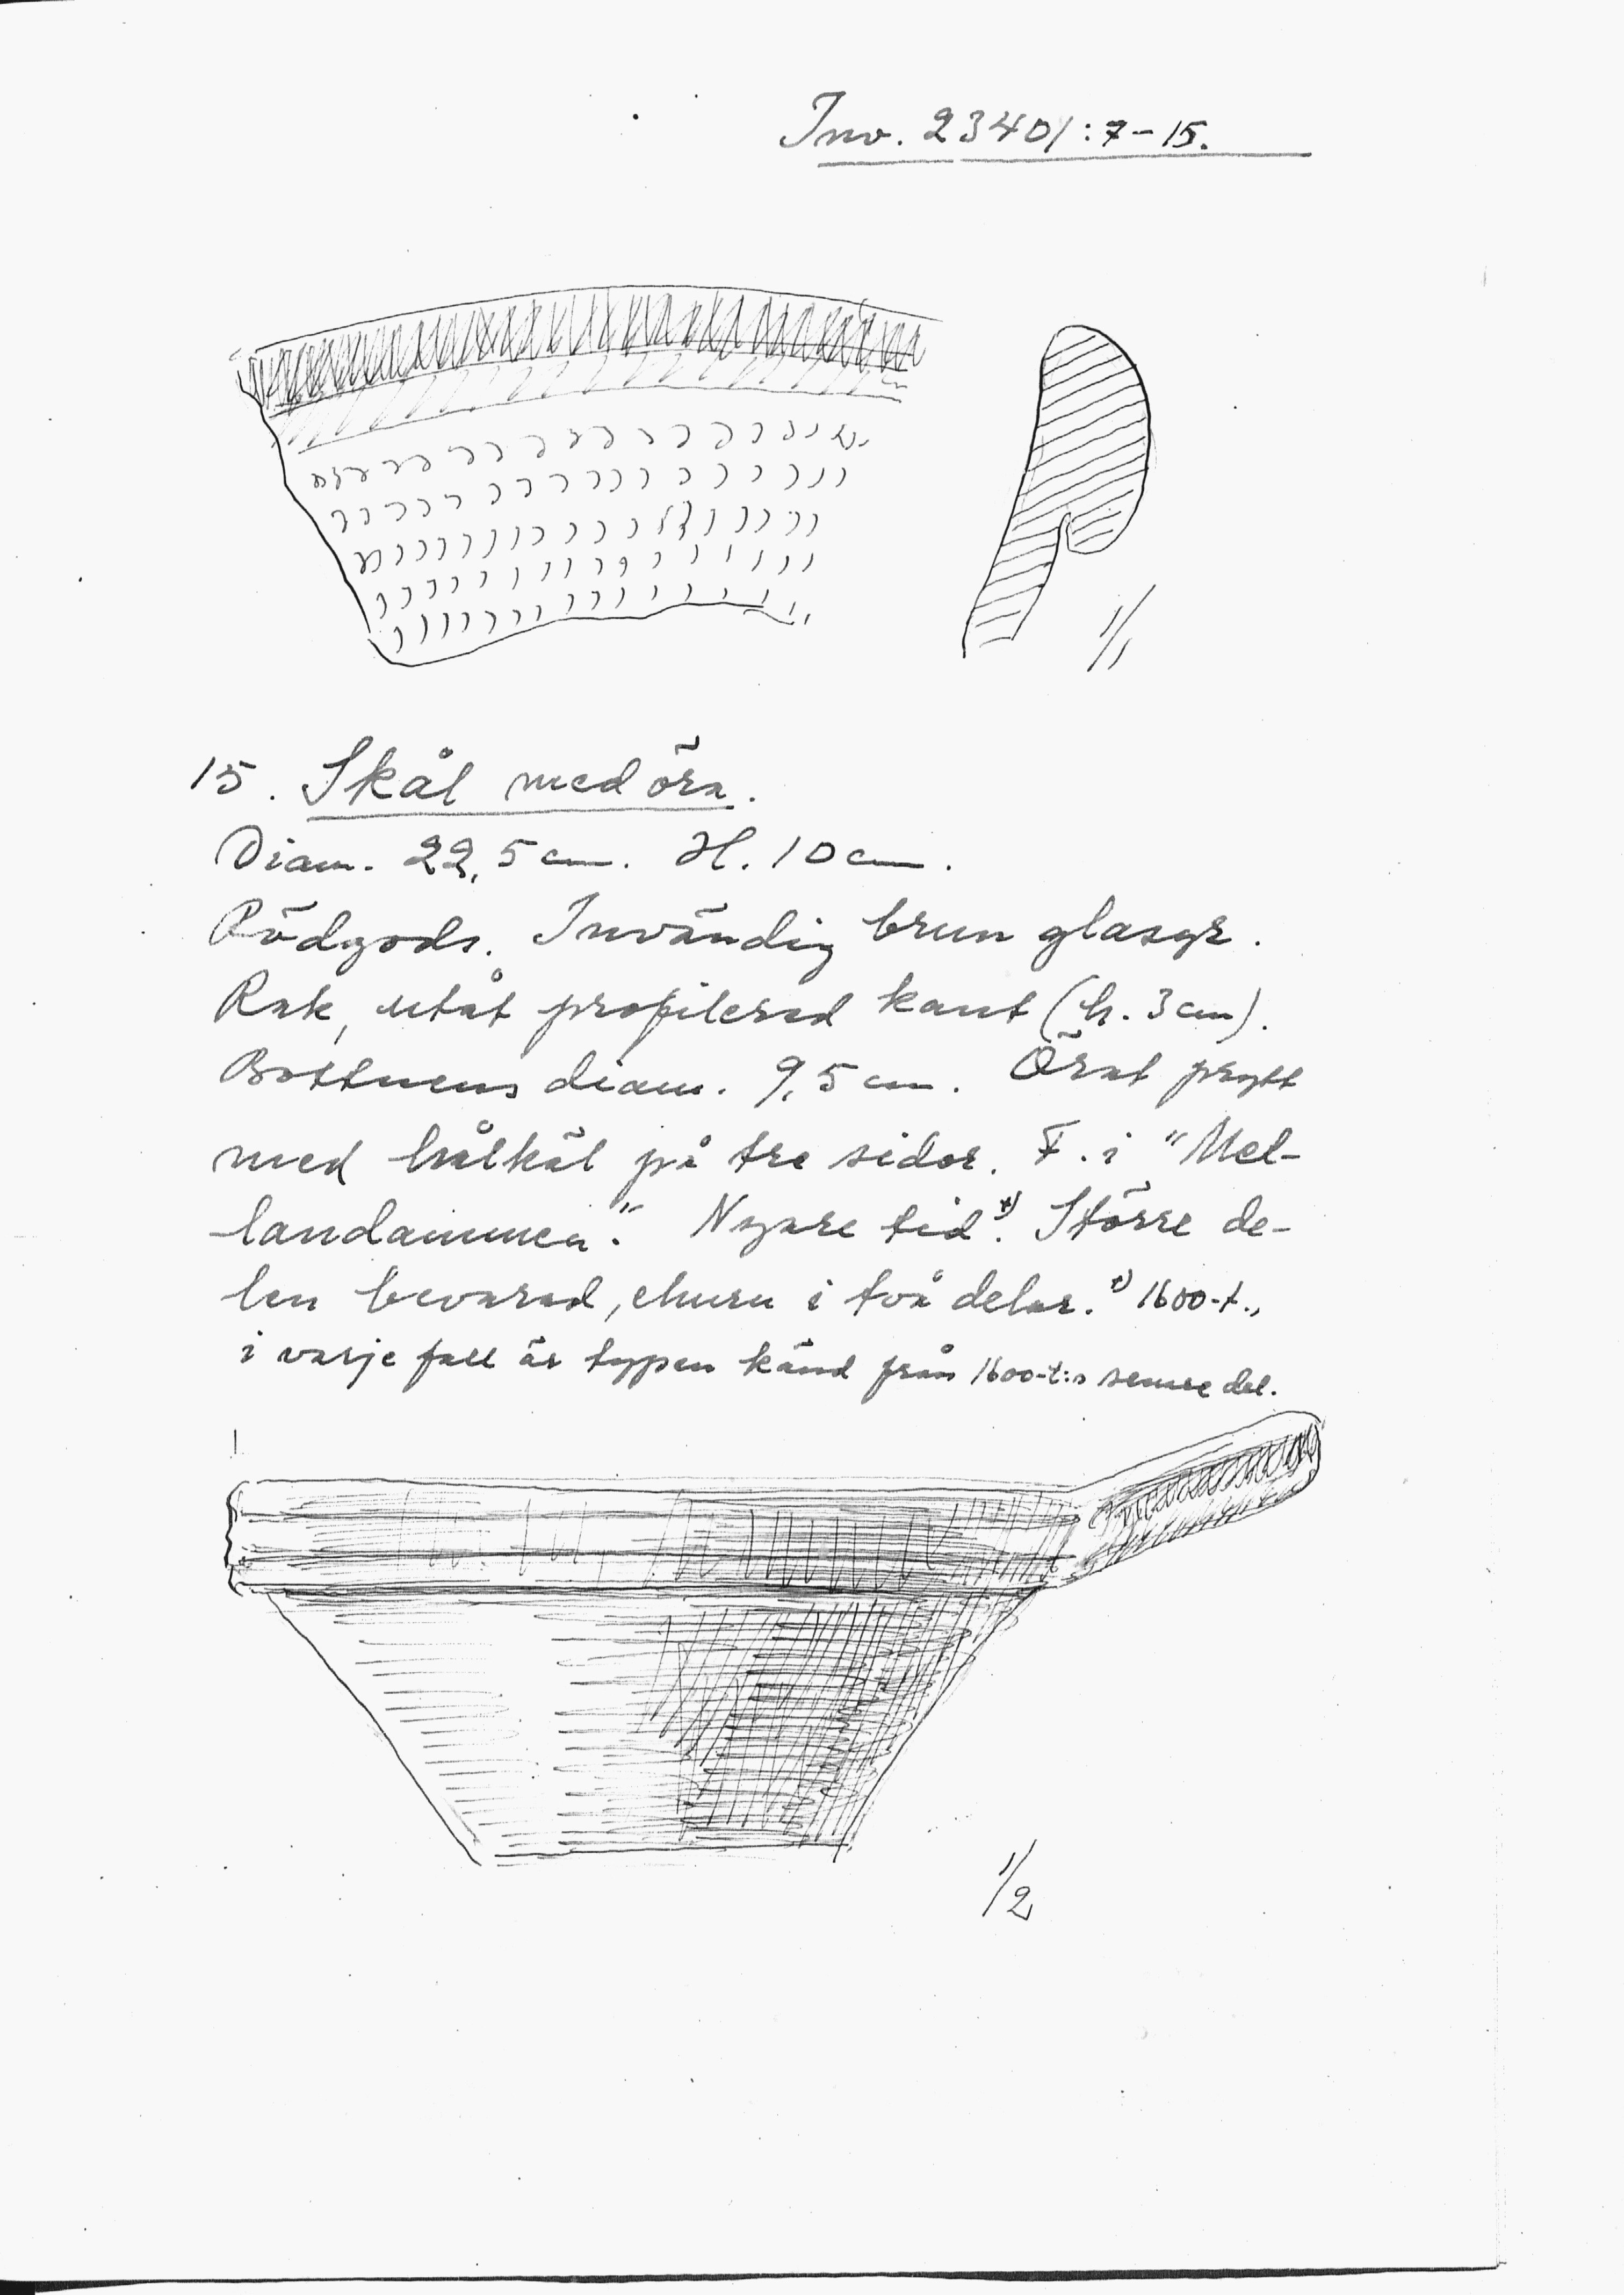 Inv. 23401:7-15.
1/1
15. Skål med öra.
Diam. 22,5 cm. H. 10 cm.
Rödgods. Invändig brun glasyr.
Rak, utåt profilerad kant (h. 3 cm).
Bottnens diam. 9,5 cm. Örat prytt
med hålkäl på tre sidor. F. i "Mel-
landammen." Nyare tid.*) Större de-
len bevarad, ehuru i två delar. *) 1600-t.,
i varje fall är typen känd från 1600-t:s senare del.
1/2